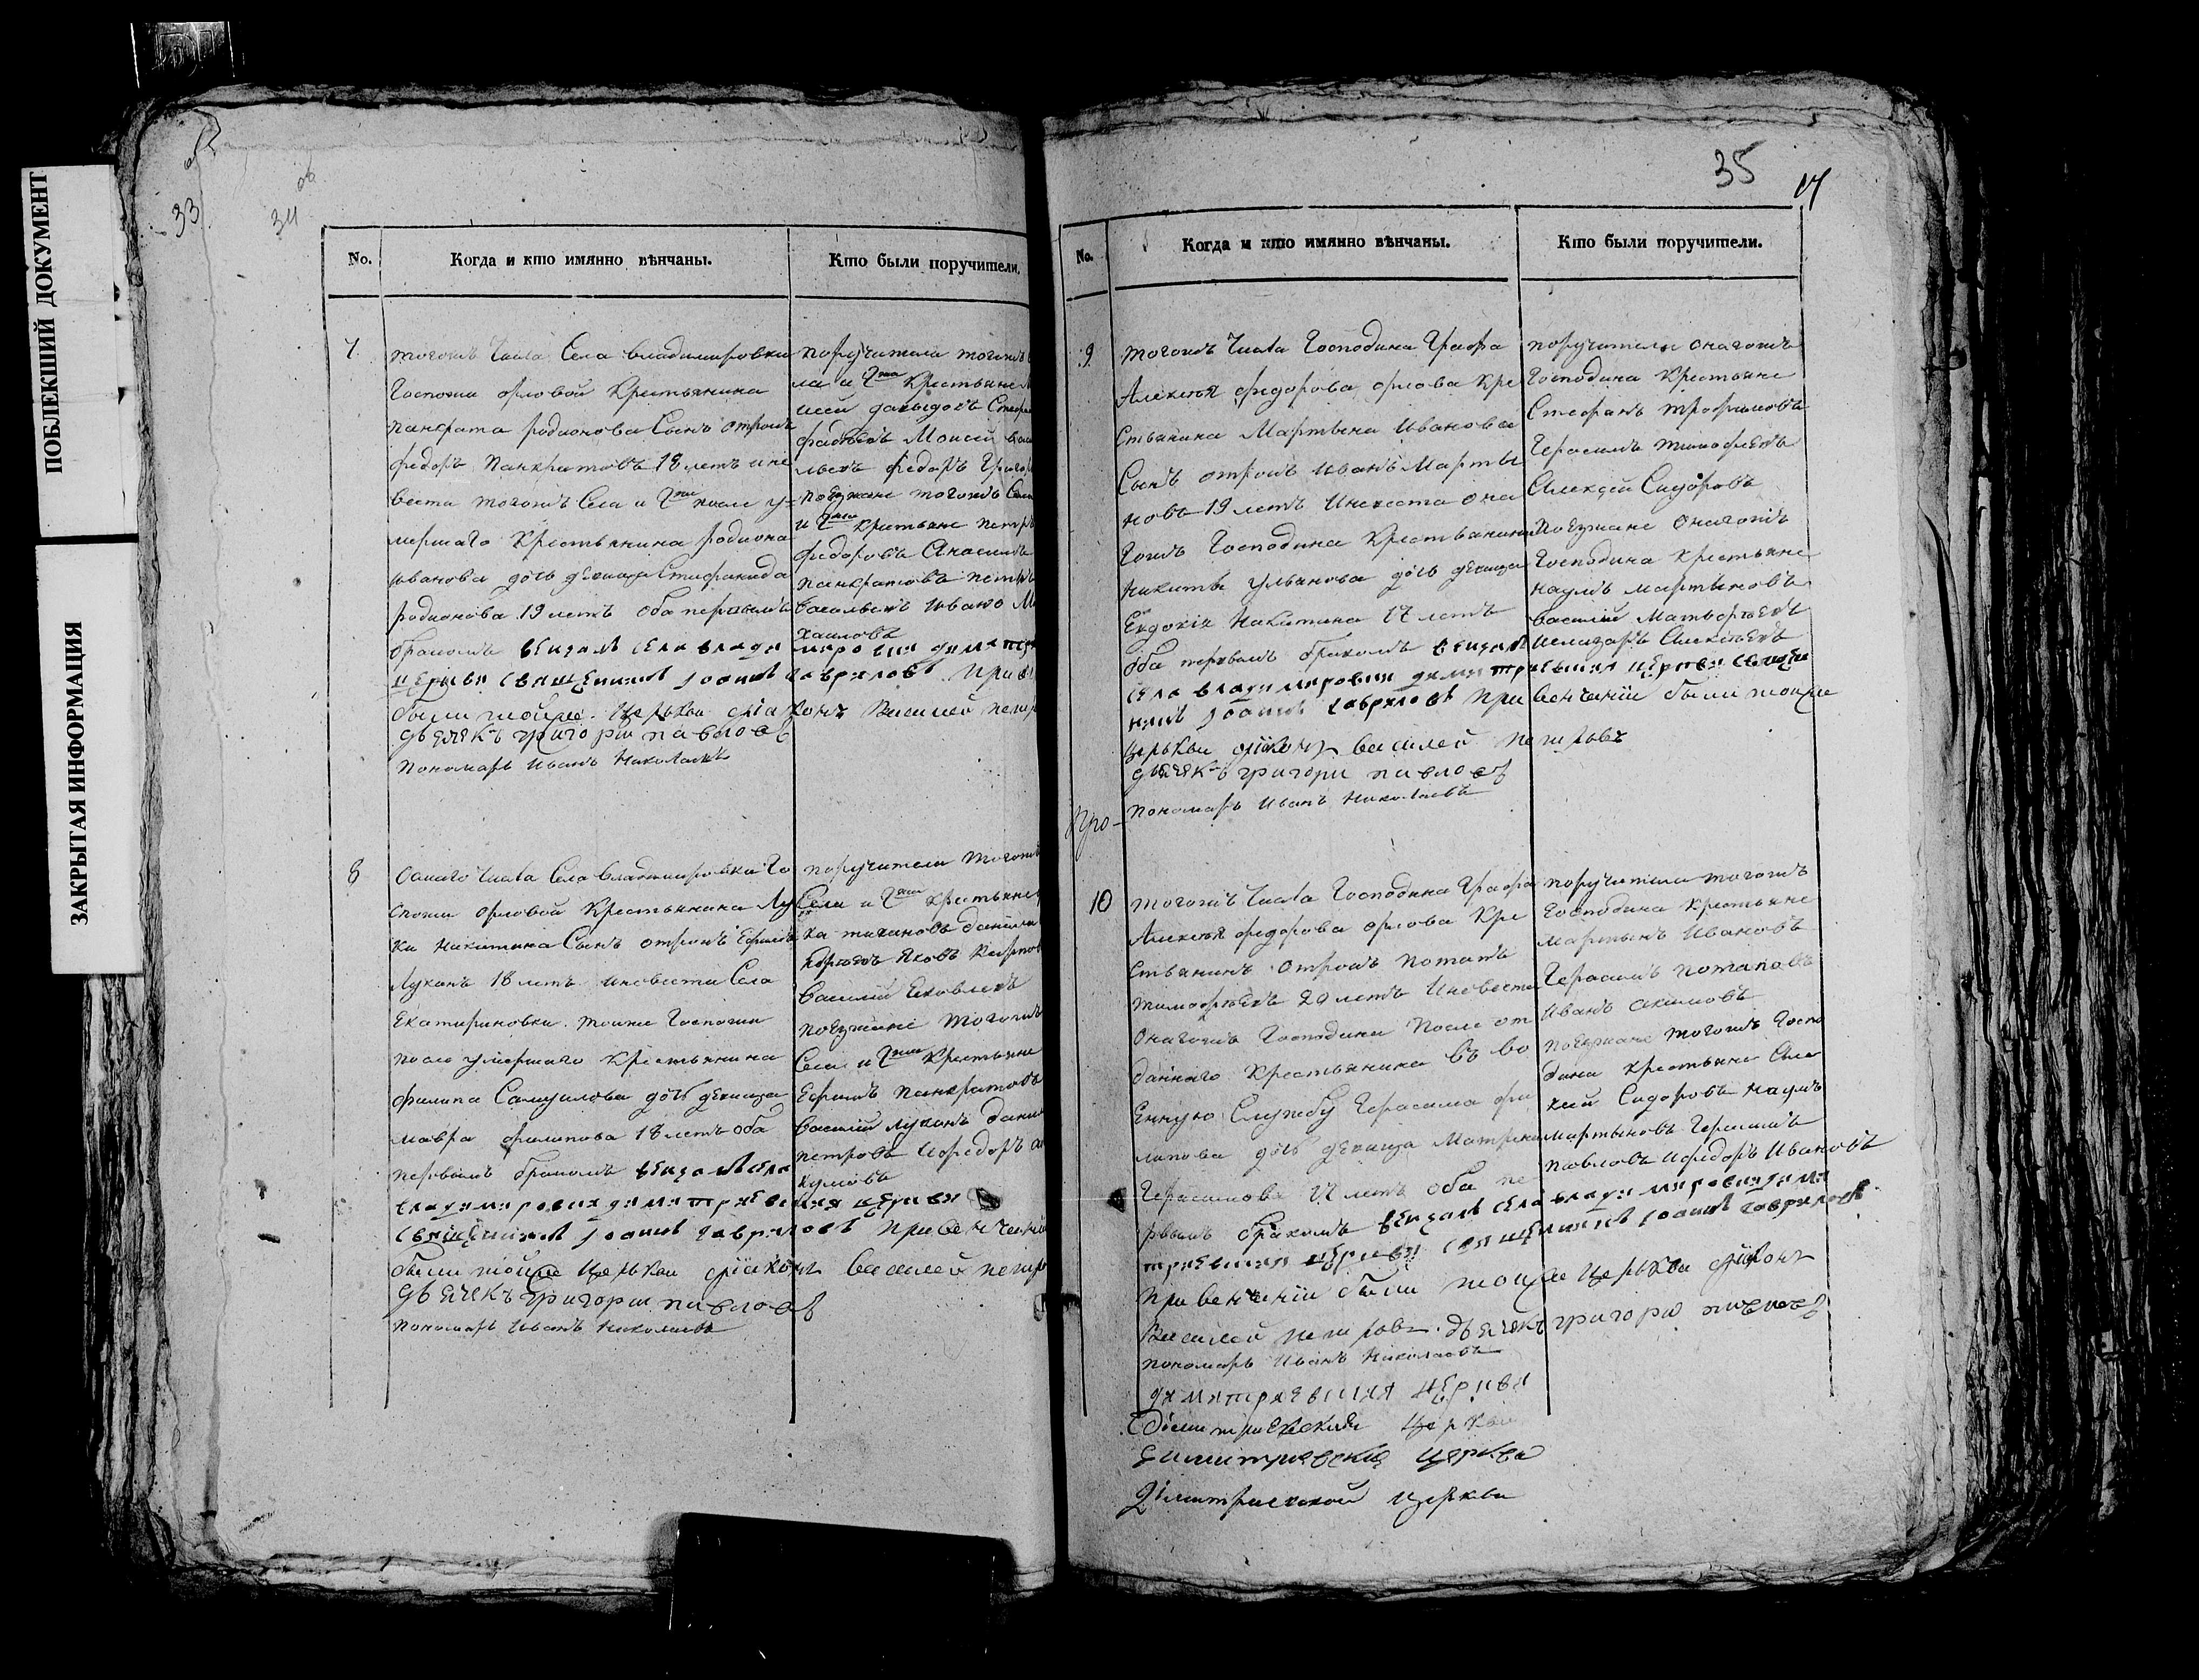 ПОБЛЕКШИЙ ДОКУМЕНТ
ЗАКРЫТАЯ ИНФОРМАЦИЯ
33
34 об
No.
Когда и кто имянно вѣнчаны.
Кто были поручители.
7
тогожъ числа Села владимировки
Госпожи орловой Крестьянина
панкрата родионова Сынъ отрокъ
федоръ Панкратовъ 18 летъ и не
веста тогожъ Села и Гжи после у=
мершаго Крестьянина родиона
Иванова дочь девица Стефанида
родионова 19 летъ оба первымъ
бракомъ венчалъ села влади
мировки димитр
церкви священникъ Iоаннъ гавриловъ при в
были тойже церькви діаконъ Василей петр
дьячекъ григори павловъ
пономарь Иванъ Николаевъ
поручители тогожъ
ла и Гжи Крестьяне
сей давыдовъ Стефа
фадеевъ Моисей васи
льевъ федоръ Григор
поезжане тогожъ Села
и Гжи крестьяне петръ
федоровъ Анасимъ
панкратовъ петръ
васильевъ Ивано Ми
хаиловъ
8
Села владимировки Го
спожи орловой Крестьянина Лу
ки Никитина Сынъ отрокъ Ефимъ
Лукинъ 18 летъ и невеста Села
Екатериновки тойже Госпожи
после умершаго крестьянина
филипа Самуилова дочь девица
мавра филипова 18 летъ оба
первымъ бракомъ венчалъ села
владимировки димитриевския церкви
священникъ Iоаннъ гавриловъ при венчаніи
были тойже церькви діаконъ василей петр
дьячекъ григори павловъ
пономарь Иванъ Николаевъ
поручители тогожъ
Села и Гжи крестьяне
ка тихановъ данила
Яковъ Карпов
Василий Яковлевъ
поезжане тогожъ
Села и Гжи Крестьяне
Ефимъ панкратовъ
василий лукинъ данил
петровъ Ифедоръ ак
кумовъ
35
17
No.
Когда и кто имянно вѣнчаны.
Кто были поручители.
9
тогожъ числа Господина Графа
Алексея федорова орлова Кре
стьянина Мартына Иванова
Сынъ отрокъ Иванъ Марты
новъ 19 летъ Иневеста она
гожъ Господина Крестьянина
Никиты Ульянова дочь девица
Евдокія Никитина 17 летъ
оба первымъ бракомъ венчалъ
села владимировки димитриевския церкви священ
никъ Iоаннъ гавриловъ при венчаніи были тойже
церькви діаконъ василей петровъ
дьячекъ григори павловъ
пономарь Иванъ Николаевъ
поручители онагожъ
Господина Крестьяне
Стефанъ трофимовъ
Герасимъ тимофеевъ
Алексей Сидоровъ
поезжане онагожъ
Господина крестьяне
наумъ мартыновъ
василий Матьвеевъ
Алексеевъ
Про-
10
тогожъ числа Господина Графа
Алексея федорова орлова Кре
стьянинъ отрокъ потапъ
тимофеевъ 20 летъ Иневеста
онагожъ Господина После от
даннаго Крестьянина въ во
енную Службу Герасима фи
липова дочь девица Матрена
Герасимова 17 летъ оба пе
рвымъ бракомъ венчалъ села владимировки дими
триевския церкви священникъ Iоаннъ гавриловъ
при венчаніи были тойже церькви діаконъ
Василей петровъ дьячекъ григори павловъ
пономарь Иванъ Николаевъ
поручители тогожъ
Господина крестьяне
мартынъ Ивановъ
Герасимъ потаповъ
Иванъ акимовъ
поезжане тогожъ Госпо
дина крестьяне Але
ксей Сидоровъ наумъ
мартыновъ Герасимъ
павловъ Ифедоръ Ивановъ
димитриевския церкви
Димитриевския церкви
Димитриевския церкви
Димитриевской церкви